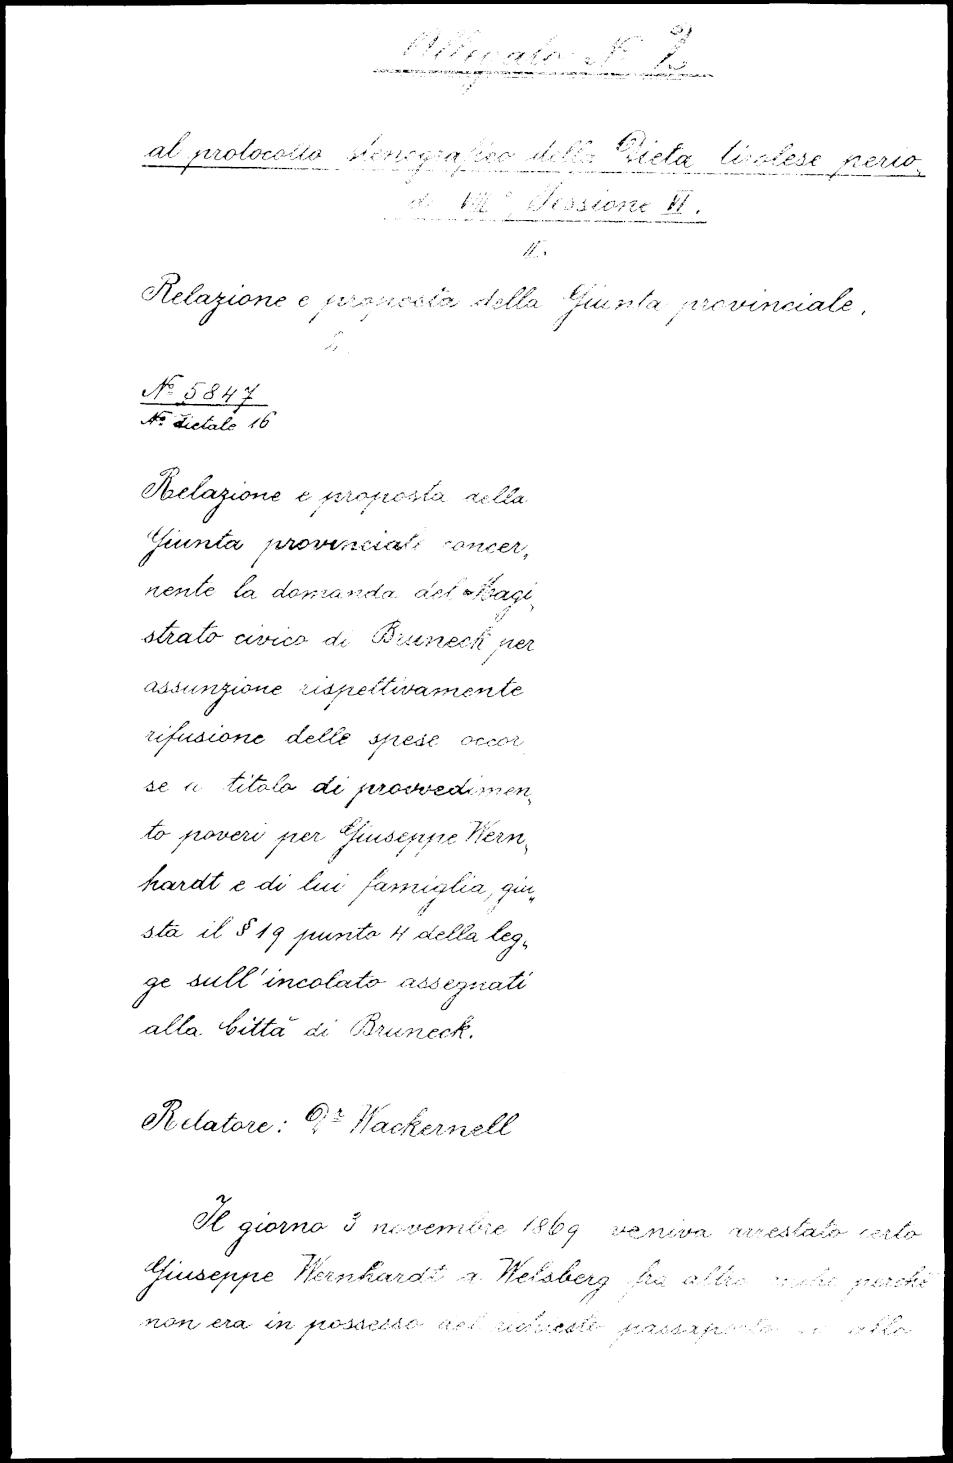 Allegato No 2
al protocollo stenografico della Dieta tirolese perio„
do VIII°, Sessione VI.
Relazione e proposta della Giunta provinciale.
No 5847
No dietale 16
Relazione e proposta della
Giunta provinciale concer„
nente la domanda del Magi„
strato civico di Bruneck per
assunzione rispettivamente
rifusione delle spese occor„
se a titolo di provvedimen„
to poveri per Giuseppe Wern„
hardt e di lui famiglia, giu„
sta il § 19 punto 4 della leg„
ge sull'incolato assegnati
alla Città di Bruneck.
Relatore: Dr Wackernell
Il giorno 3 novembre 1869 veniva arrestato certo
Giuseppe Wernhardt a Welsberg fra altro anche perchè
non era in possesso del richiesto passaporto